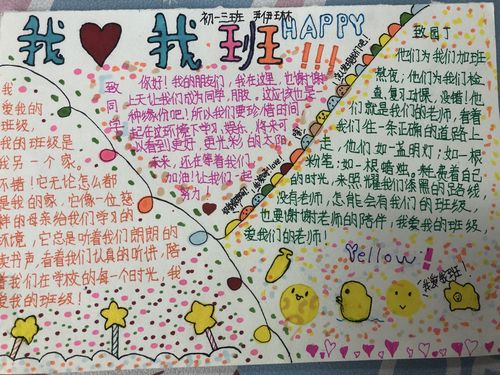 初一三班 尹伊琳
我❤我班
HAPPY
!!!
我
爱我的
班级，
我的班级是
我另一个家。
不错！它无论怎么都
是我的家，它像一位慈
祥的母亲给我们学习的
环境，它总是听着我们朗朗的
读书声，看着我们认真的听讲，陪
着我们在学校的每一个时光，我
爱我的班级！
致
同
学
你好！我的朋友们，我在这里，也谢谢
上天让我们成为同学，朋友，这应该也是一
种缘份吧！所以我们要珍惜时间
一起在这环境下学习，娱乐，将来可
以看到更好，更光彩的太阳
未来，还在等着我们。
加油！让我们一起
努力！
致园丁
他们为我们加班
熬夜，他们为我们检
查，复习功课，没错！他
们就是我们的老师，看着
我们在一条正确的道路上
走，他们如一盏明灯；如一根
粉笔；如一根蜡烛。耗费着自己
的时光，来照耀我们漆黑的路线
没有老师，怎能会有我们的班级，
也要谢谢老师的陪伴，我爱我的班级，
爱我们的老师！
Yellow!
我爱我班！